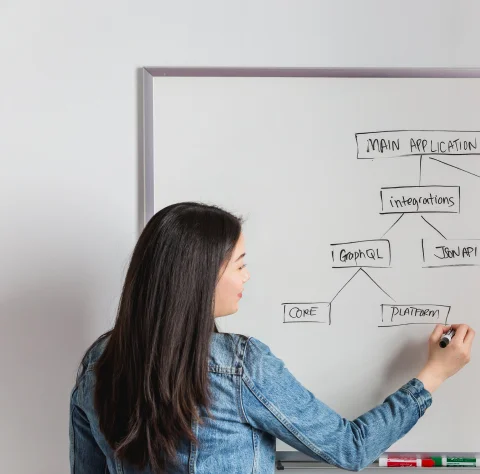 MAIN APPLICATION
integrations
GraphQL
JSON API
CORE
PLATFORM